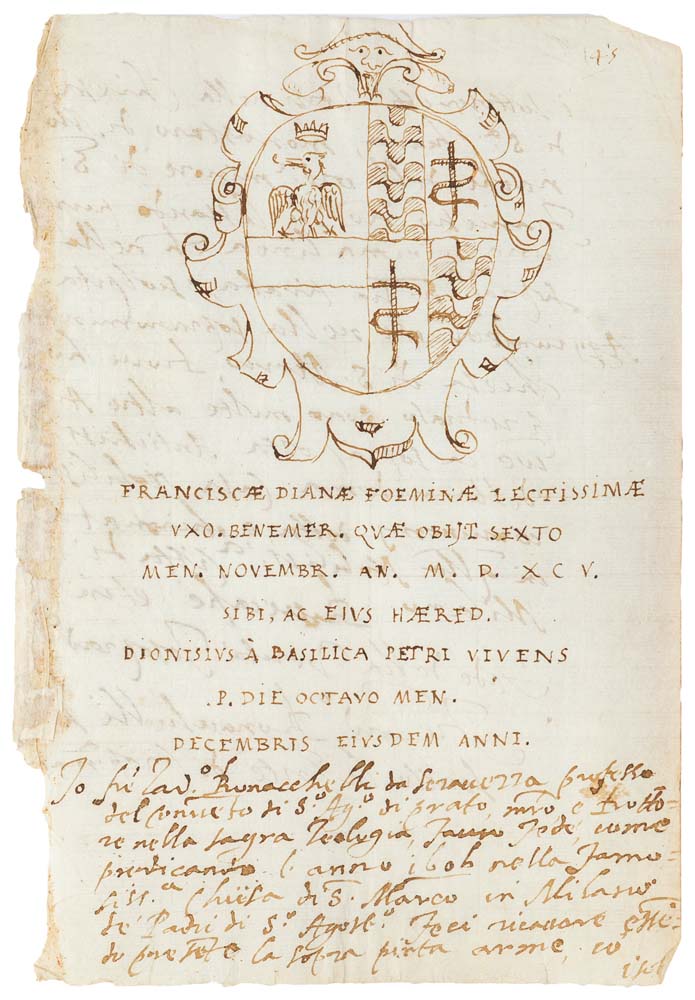 45
FRANCISCÆ DIANÆ FOEMINÆ LECTISSIMÆ
VXO. BENEMER. QVÆ OBIJT SEXTO
MEN. NOVEMBR. AN. M. D. X C V.
SIBI, AC EIVS HÆRED.
DIONISIVS À BASILICA PETRI VIVENS
.P. DIE OCTAVO MEN.
DECEMBRIS EIVSDEM ANNI.
Io frè Tad.º Bonacchelli da Seravezza professo
del conveto di S.º Ag.º di prato, mro e Dotto=
re nella sagra Teologia, faccio fede, come
predicando l'anno 1606 nella famo=
siss.ª Chiesa di S. Marco in Milano
de Padri di S.º Agost.º feci ricavare esse=
do presete la sopra pieta arme, co